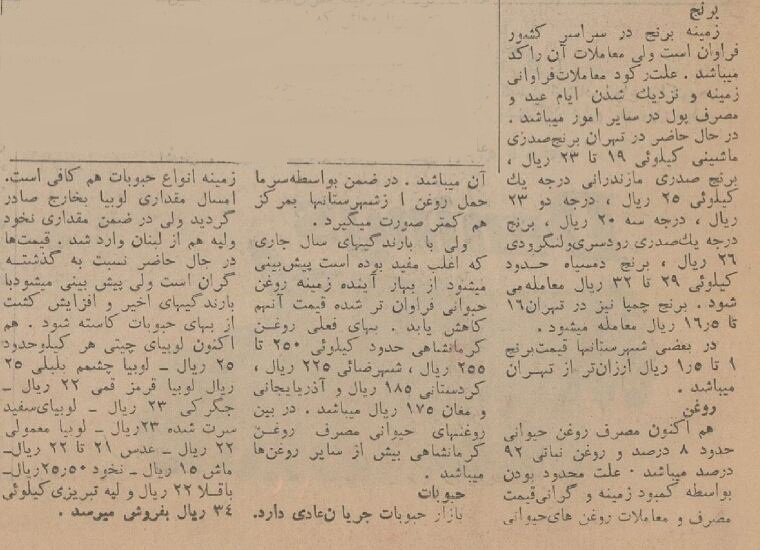 برنج
زمینه برنج در سراسر کشور
فراوان است ولی معاملات آن راکد
میباشد . علت رکود معاملات فراوانی
زمینه و نزدیک شدن ایام عید و
مصرف پول در سایر امور میباشد .
در حال حاضر در تهران برنج صدری
ماشینی کیلوئی ۱۹ تا ۲۳ ریال ،
برنج صدری مازندرانی درجه یک
کیلوئی ۲۵ ریال ، درجه دو ۲۳
ریال ، درجه سه ۲۰ ریال ، برنج
درجه یک صدری رودسری ولنگرودی
۲۶ ریال ، برنج دمسیاه حدود
کیلوئی ۲۹ تا ۳۲ ریال معامله می
شود . برنج چمپا نیز در تهران ۱۶
تا ۱۶٫۵ ریال معامله میشود .
در بعضی شهرستانها قیمت برنج
۱ تا ۱٫۵ ریال ارزان‌تر از تهران
میباشد .
روغن
هم اکنون مصرف روغن حیوانی
حدود ۸ درصد و روغن نباتی ۹۲
درصد میباشد . علت محدود بودن
بواسطه کمبود زمینه و گرانی قیمت
مصرف و معاملات روغن های حیوانی
آن میباشد . در ضمن بواسطه سرما
حمل روغن ا زشهرستانها بمرکز
هم کمتر صورت میگیرد .
ولی با بارندگیهای سال جاری
که اغلب مفید بوده است پیش‌بینی
میشود از بهار آینده زمینه روغن
حیوانی فراوان تر شده قیمت آنهم
کاهش یابد . بهای فعلی روغن
کرمانشاهی حدود کیلوئی ۲۵۰ تا
۲۵۵ ریال ، شهرضائی ۲۲۵ ریال ،
کردستانی ۱۸۵ ریال و آذربایجانی
و مغان ۱۷۵ ریال میباشد . در بین
روغنهای حیوانی مصرف روغن
کرمانشاهی بیش از سایر روغن‌ها
میباشد .
حبوبات
بازار حبوبات جریان عادی دارد.
زمینه انواع حبوبات هم کافی است.
امسال مقداری لوبیا بخارج صادر
گردید ولی در ضمن مقداری نخود
ولپه هم از لبنان وارد شد . قیمت‌ها
در حال حاضر نسبت به گذشته
گران است ولی پیش بینی میشود با
بارندگیهای اخیر و افزایش کشت
از بهای حبوبات کاسته شود . هم
اکنون لوبیای چیتی هر کیلو حدود
۲۵ ریال ـ لوبیا چشم بلبلی ۲۵
ریال لوبیا قرمز قمی ۲۲ ریال ـ
جگرکی ۲۳ ریال ـ لوبیای سفید
سرت شده ۲۳ ریال ـ لوبیا معمولی
۲۲ ریال ـ عدس ۲۱ تا ۲۲ ریال ـ
ماش ۱۵ ریال ـ نخود ۲۵٫۵۰ ریال ـ
باقلا ۲۲ ریال و لپه تبریزی کیلوئی
۳۴ ریال بفروش میرسد .